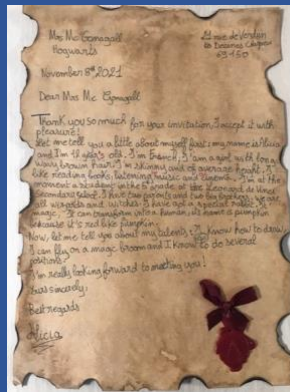 Mrs Mc Gonagall
Hogwarts
21 rue de Verdun
63150
November 8th 2021
Dear Mrs Mc Gonagall
Thank you so much for your invitation, I accept it with
pleasure!
Let me tell you a little about myself first: my name is Alicia
and I'm 11 year's old. I'm French, I am a girl with long
wavy brown hair. I'm skinny and of average height. I
like reading books, listening music and
moment a academy in the 6th grade at the Leonard de Vinci
Secondary school. I have two parents and two brothers, we are
all wizards and witches. I have got a special rabbit, it's
magic. It can transform into a human, its name is pumpkin
because it's red like pumpkin.
Now, let me tell you about my talents: I know how to draw,
I can fly on a magic broom and I know to do several
potions.
I'm really looking forward to meeting you!
Yours sincerely,
Best regards
Alicia